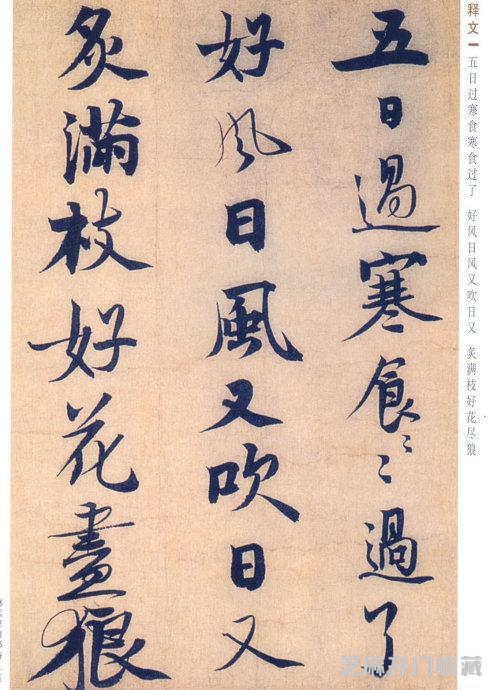 五日過寒食〻〻過了
好風日風又吹日又
炙滿枝好花盡狼
释文一 五日过寒食寒食过了 好风日风又吹日又 炙满枝好花尽狼